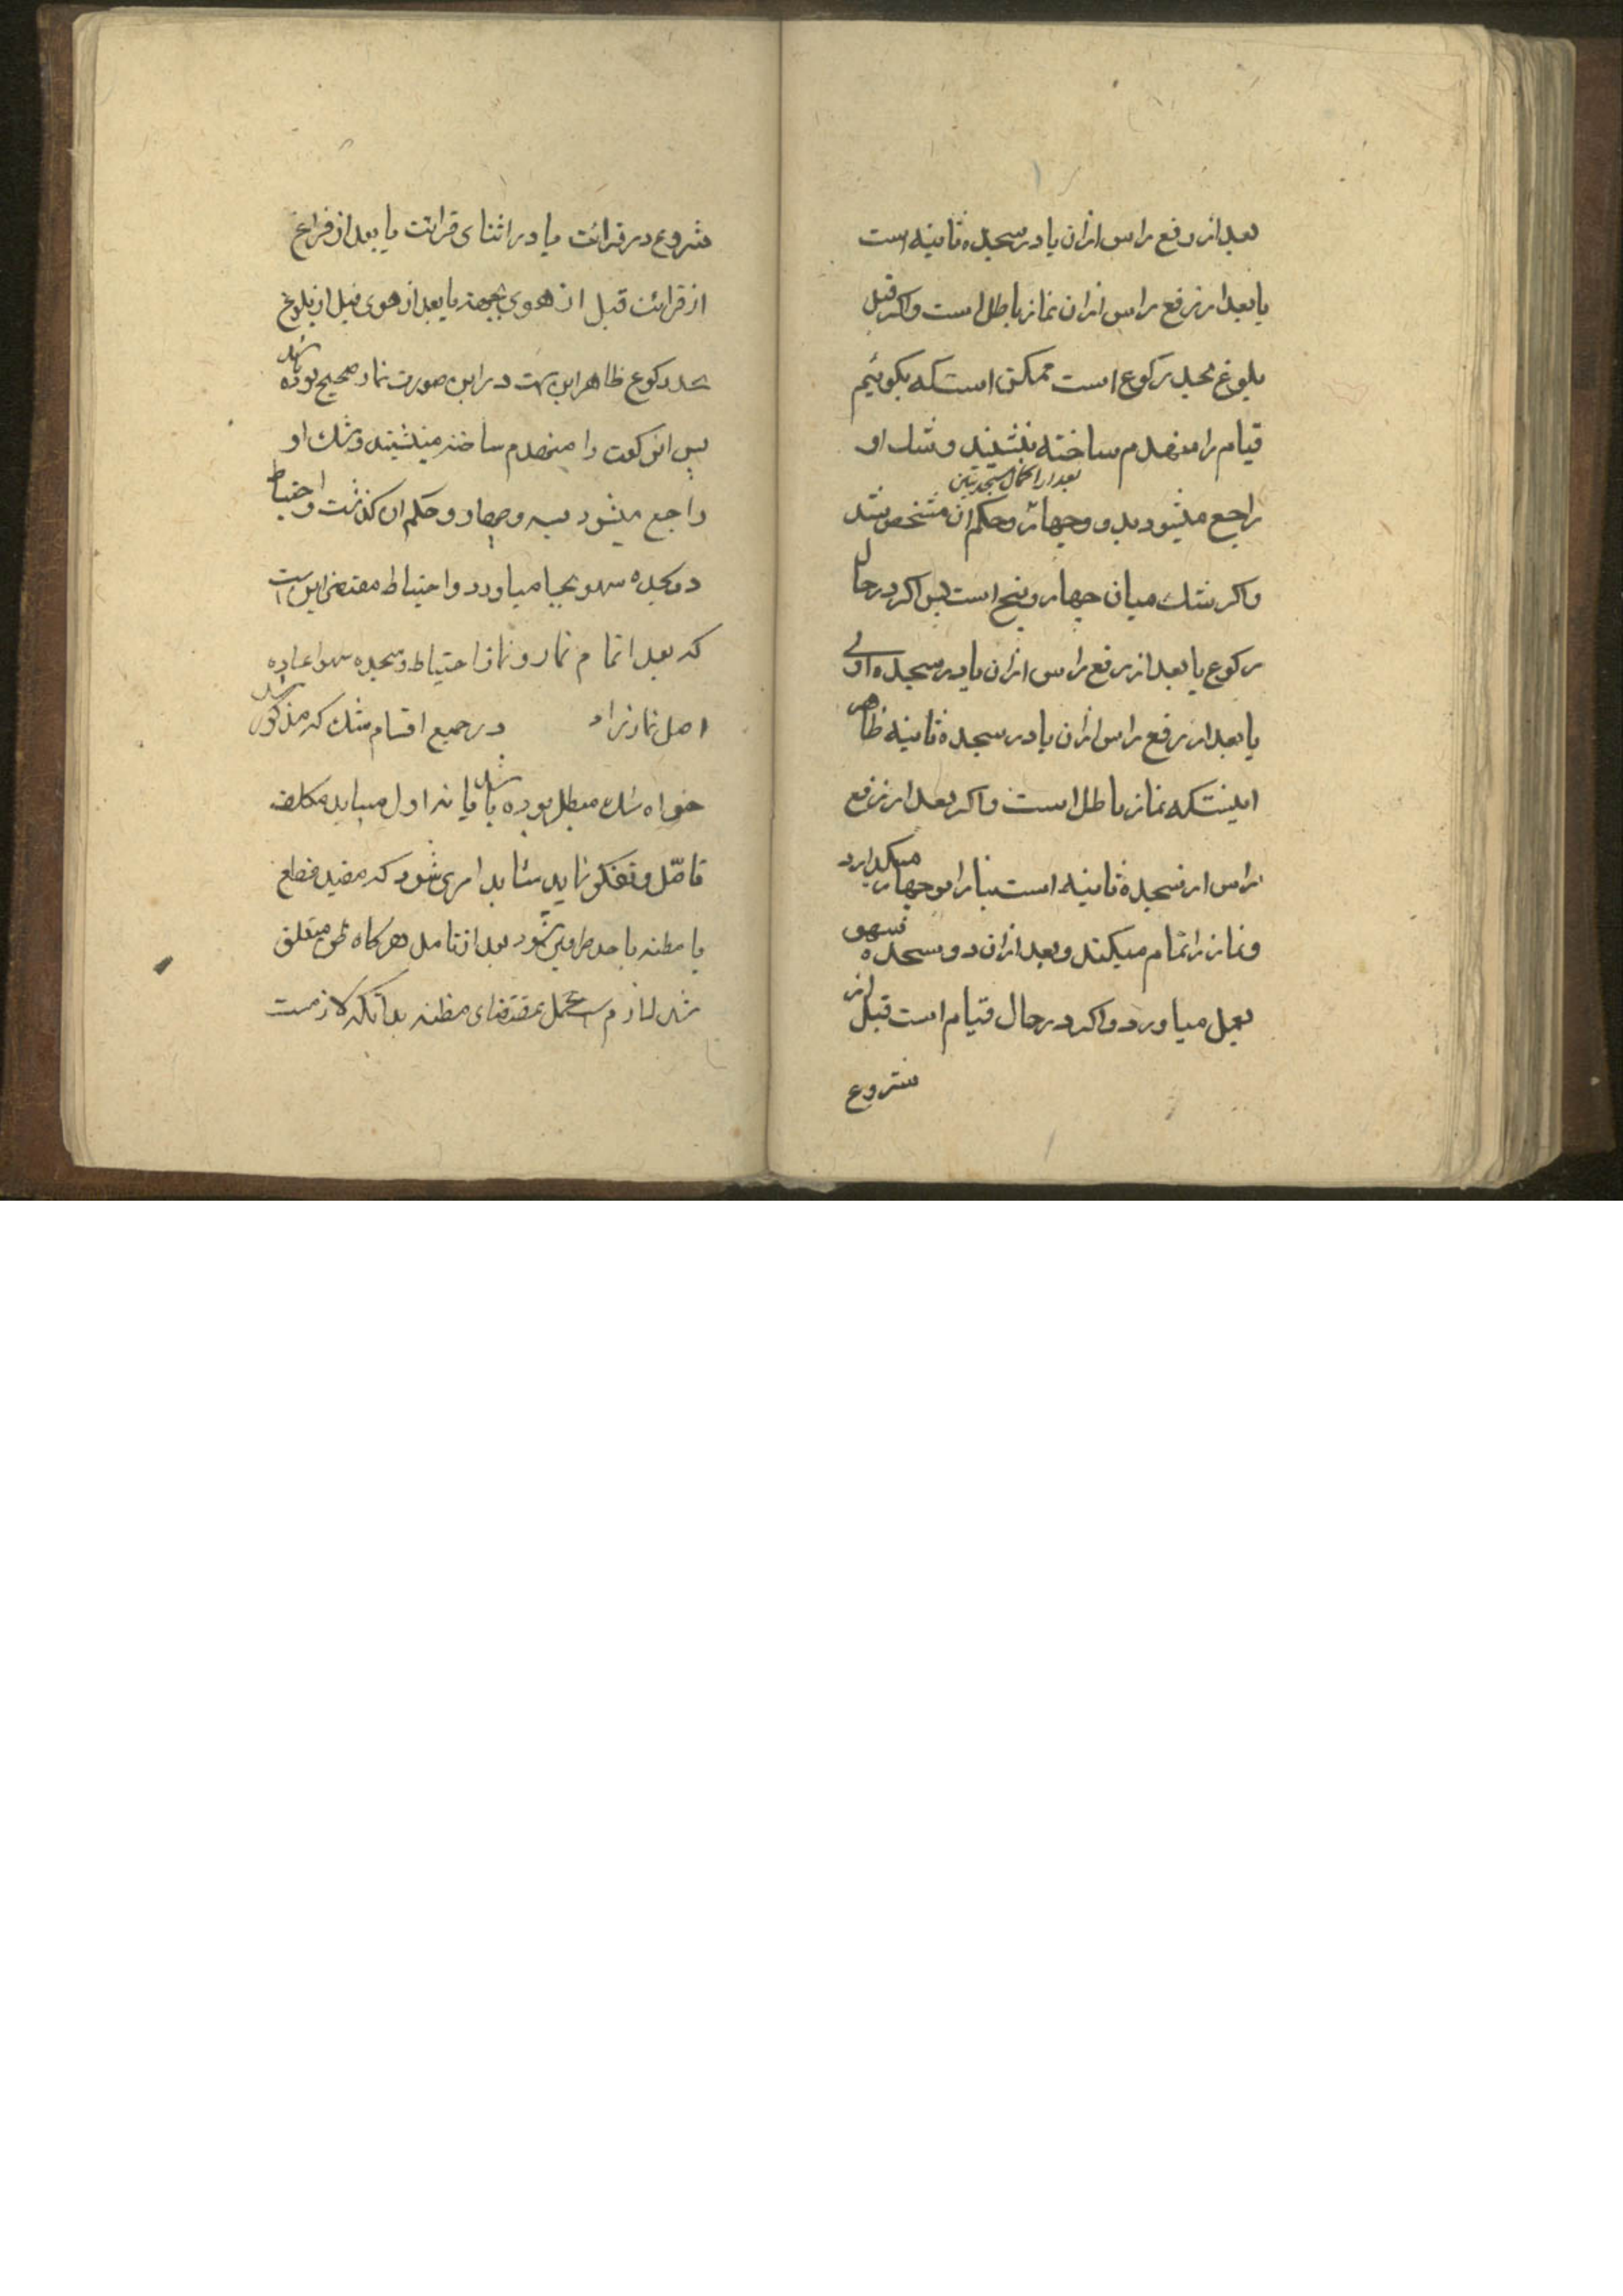 بعد از رفع راس ازان یا در سجده ثانیه است
یا بعد از رفع راس ازان نماز باطل است واکر قبل
بلوغ بحد رکوع است ممکن است که بکوئیم
قیام را منهدم ساخته بنشیند و شک او
بعد از اکمال سجدتین
راجع میشود بدو وچهار وحکم ان مشخص شد
واکر شک میان چهار وپنج است پس اکر در حال
رکوع یا بعد از رفع راس ازان یا در سجده اولی
یا بعد از رفع راس ازان یا در سجده ثانیه ظاهر
اینستکه نماز باطل است واکر بعد از رفع
راس از سجده ثانیه است بنا را بر چهار میکذارد
ونماز را تمام میکند وبعد ازان دو سجده سهو
بعمل میاورد واکر در حال قیام است قبل از
شروع
شروع در قرائت یا در اثنای قرائت یا بعد از فراغ
از قرائت قبل از هوی یا بعد از هوی قبل از بلوغ
بحد رکوع ظاهر این است در این صورت نماز صحیح بوده باشد
پس این رکعت را منهدم ساخته مینشیند وشک او
راجع میشود بسه وچهار وحکم ان کذشت واحتیاط
دو سجده سهو بجا میاورد واحتیاط مقتضی این است
که بعد اتمام نماز ونماز احتیاط وسجده سهو اعاده
اصل نماز نماید در جمیع اقسام شک که مذکور شد
خواه شک مبطل بوده باشد یا نه اول میباید مکلف
تامّل وتفکر نماید شاید امری شود که مفید قطع
یا مظنه باحد طرفین شود بعد از تامل هرکاه ظن متعلق
شد لازم است عمل بمقتضای مظنه بدانکه لازمست